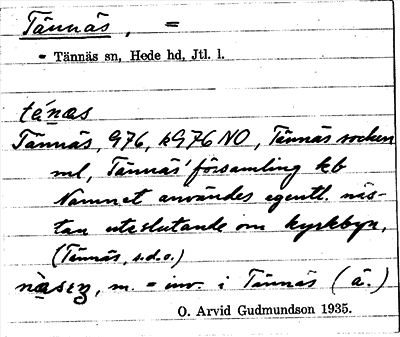 Tännäs, =
= Tännäs sn, Hede hd, Jtl. l.
tä́nas
Tännäs, 976, k976 NO, Tännäs socken
ml, Tännäs' församling kb
Namnet användes egentl. näs-
tan uteslutande om kyrkbyn,
(Tännäs, s.d.o.)
m. = inv. i Tännäs (ä.)
O. Arvid Gudmundson 1935.